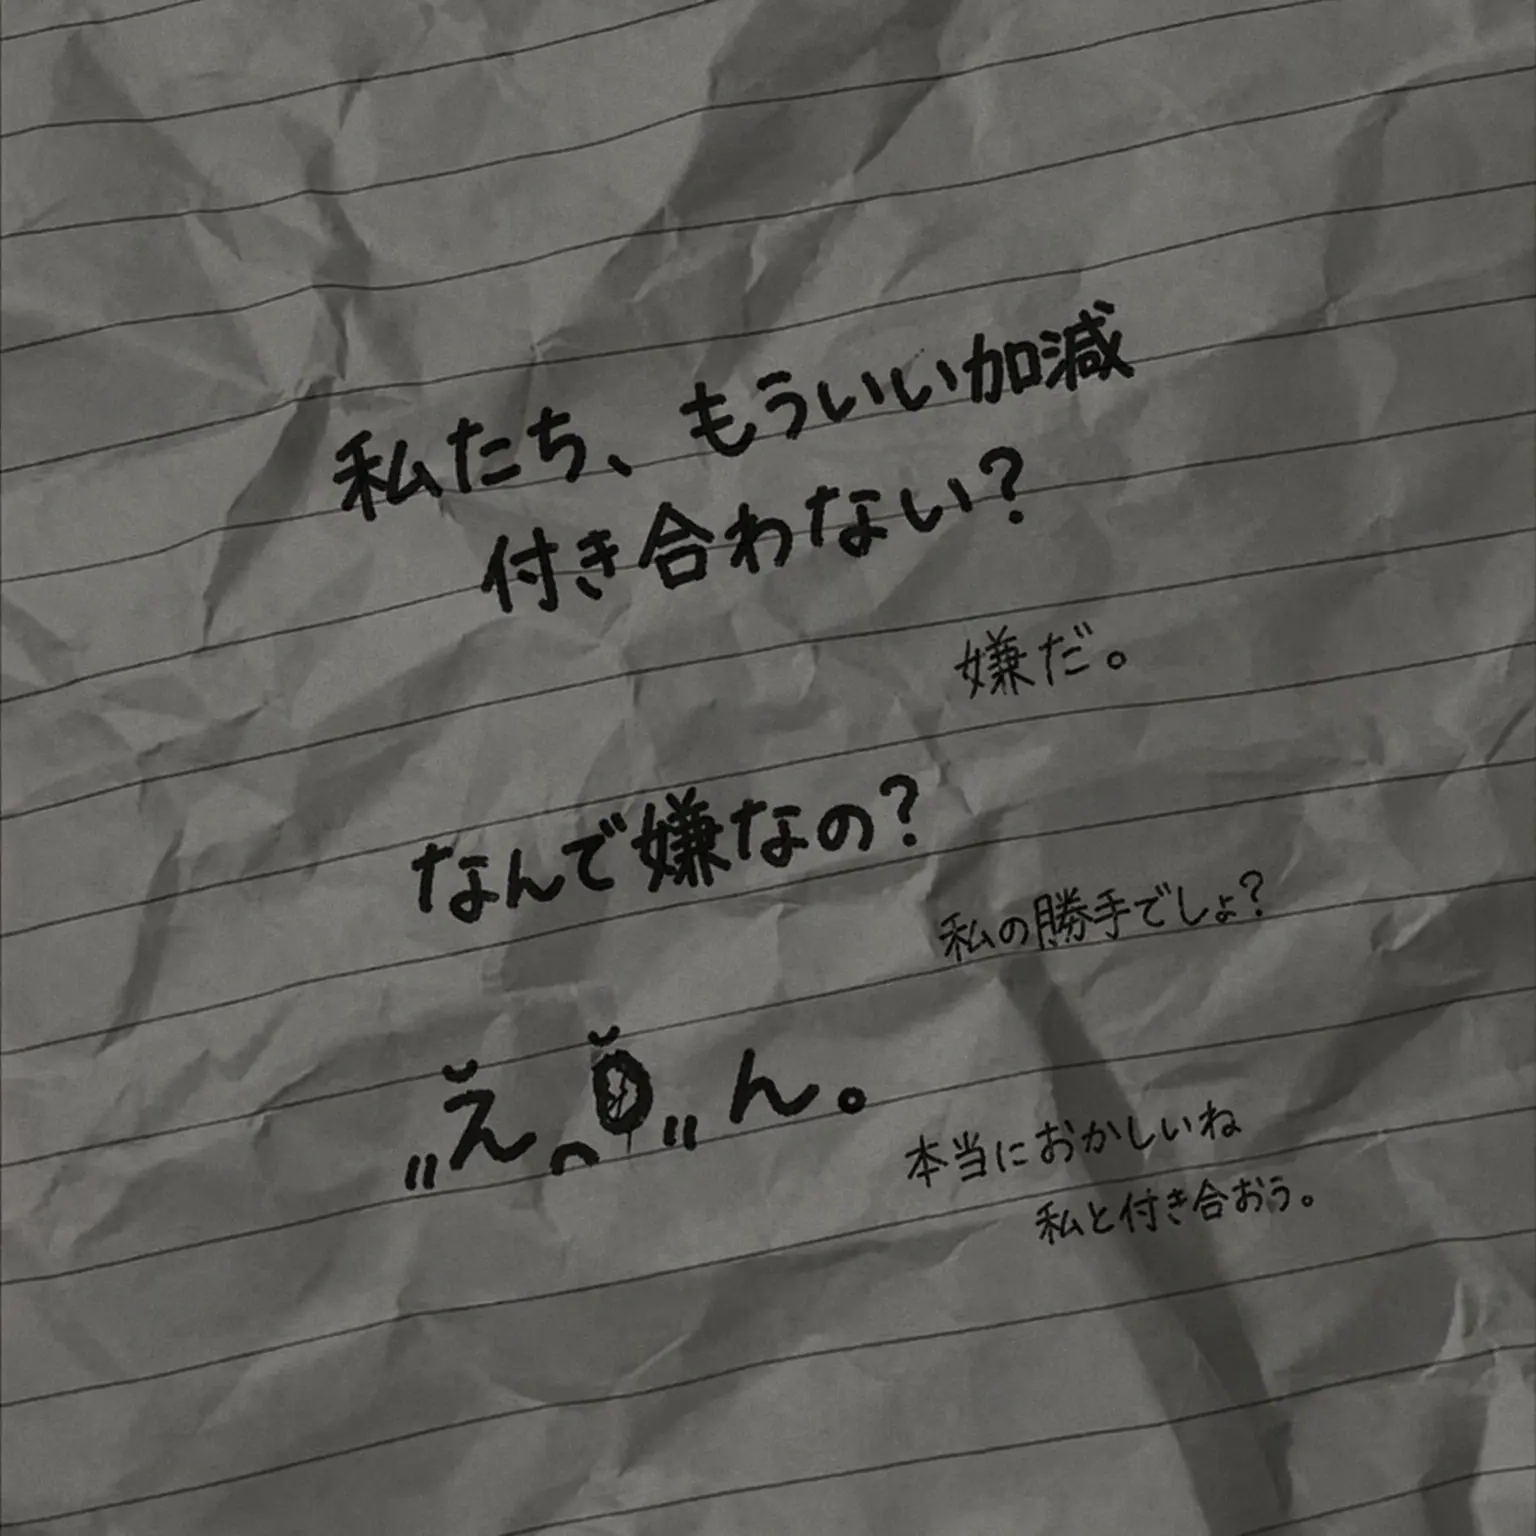 私たち、もういい加減
付き合わない？
嫌だ。
なんで嫌なの？
私の勝手でしょ？
ん。
本当におかしいね
私と付き合おう。